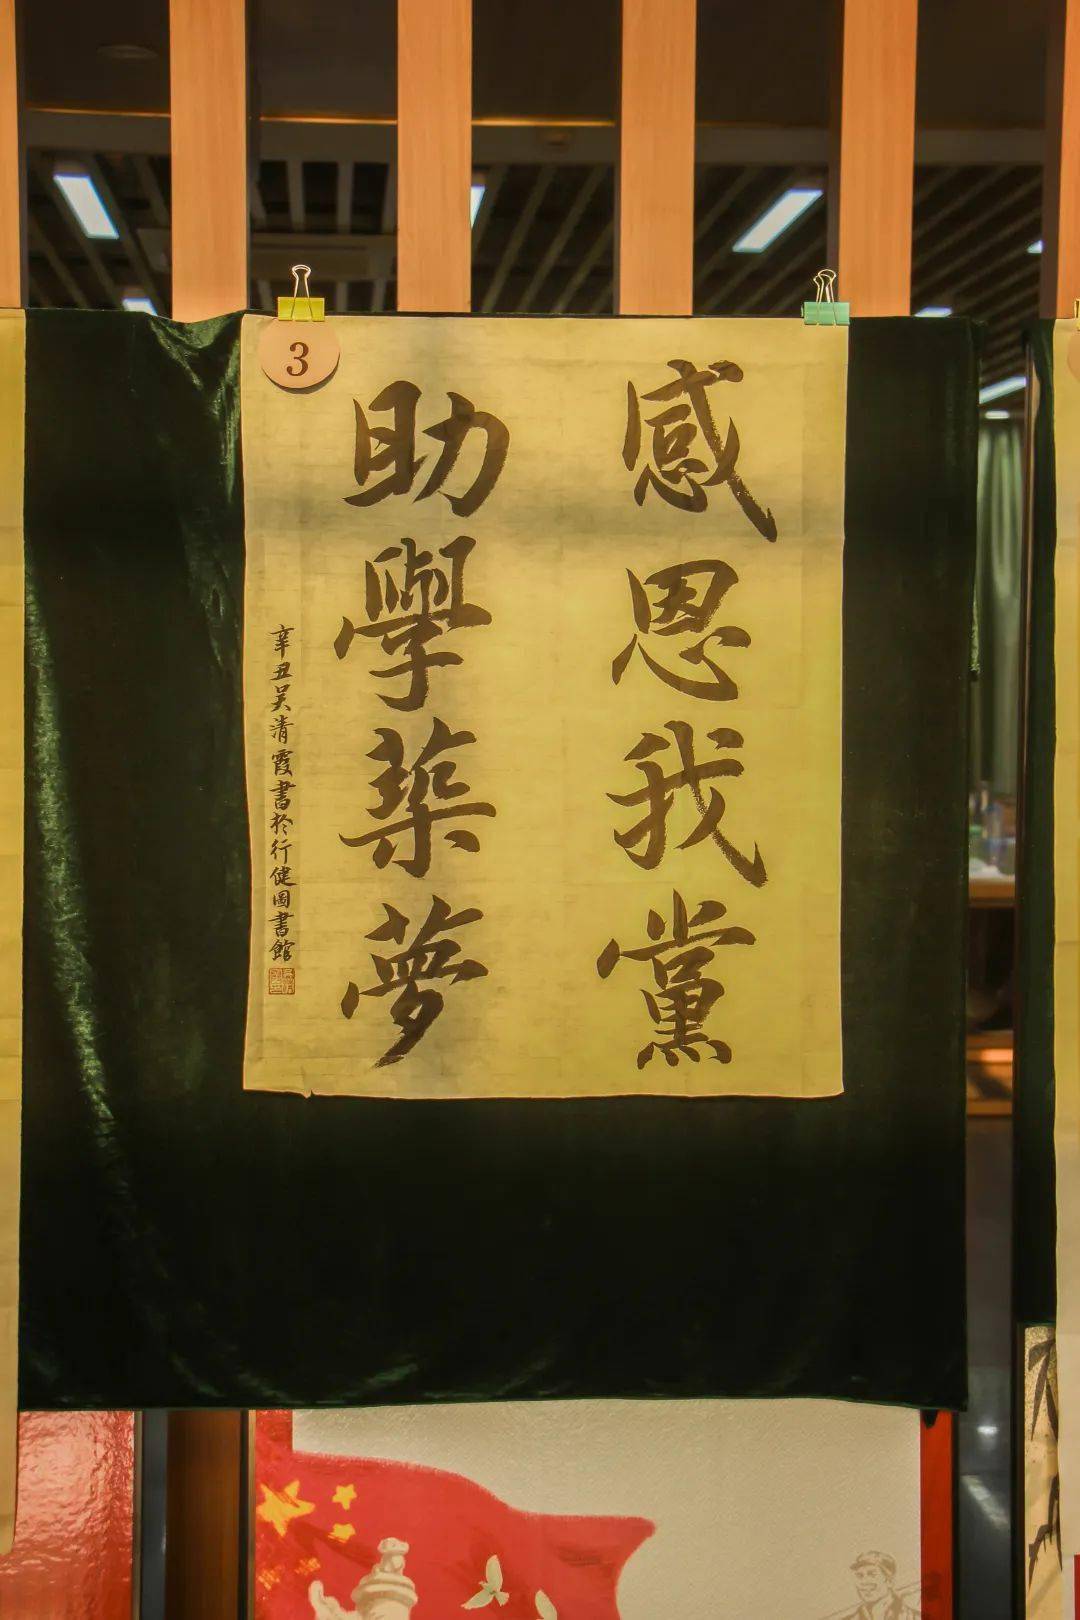 感恩我黨
助學築夢
辛丑吴清霞書於行健圖書館
3